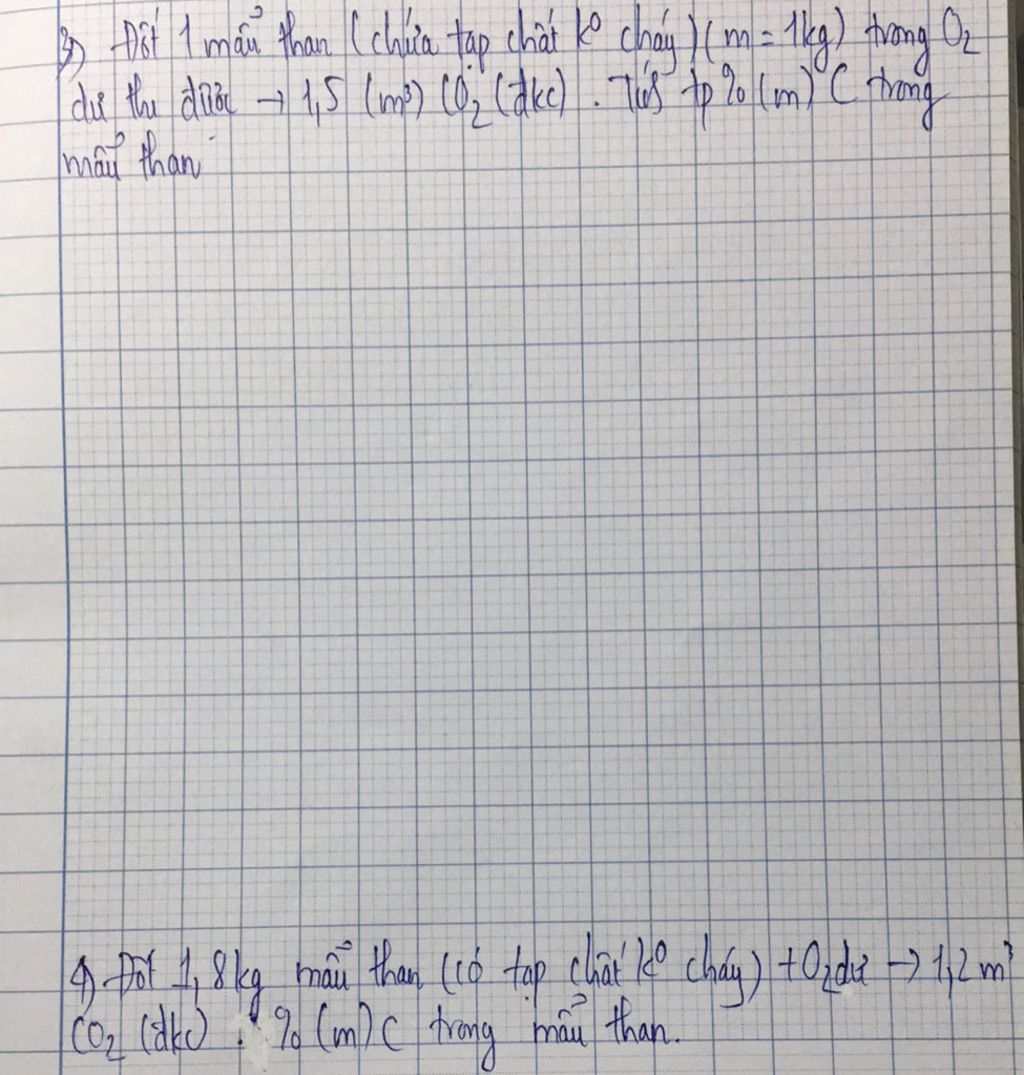 3) Đốt 1 mẩu than (chứa tạp chất kº cháy) (m = 1kg) trong O₂
dư thu được → 1,5 (m³) CO₂ (đkc). Tính tp % (m) C trong
mẩu than
4) Đốt 1,8kg mẩu than (có tạp chất kº cháy) + O₂ dư → 1,2 m³
CO₂ (đkc). % (m) C trong mẩu than.